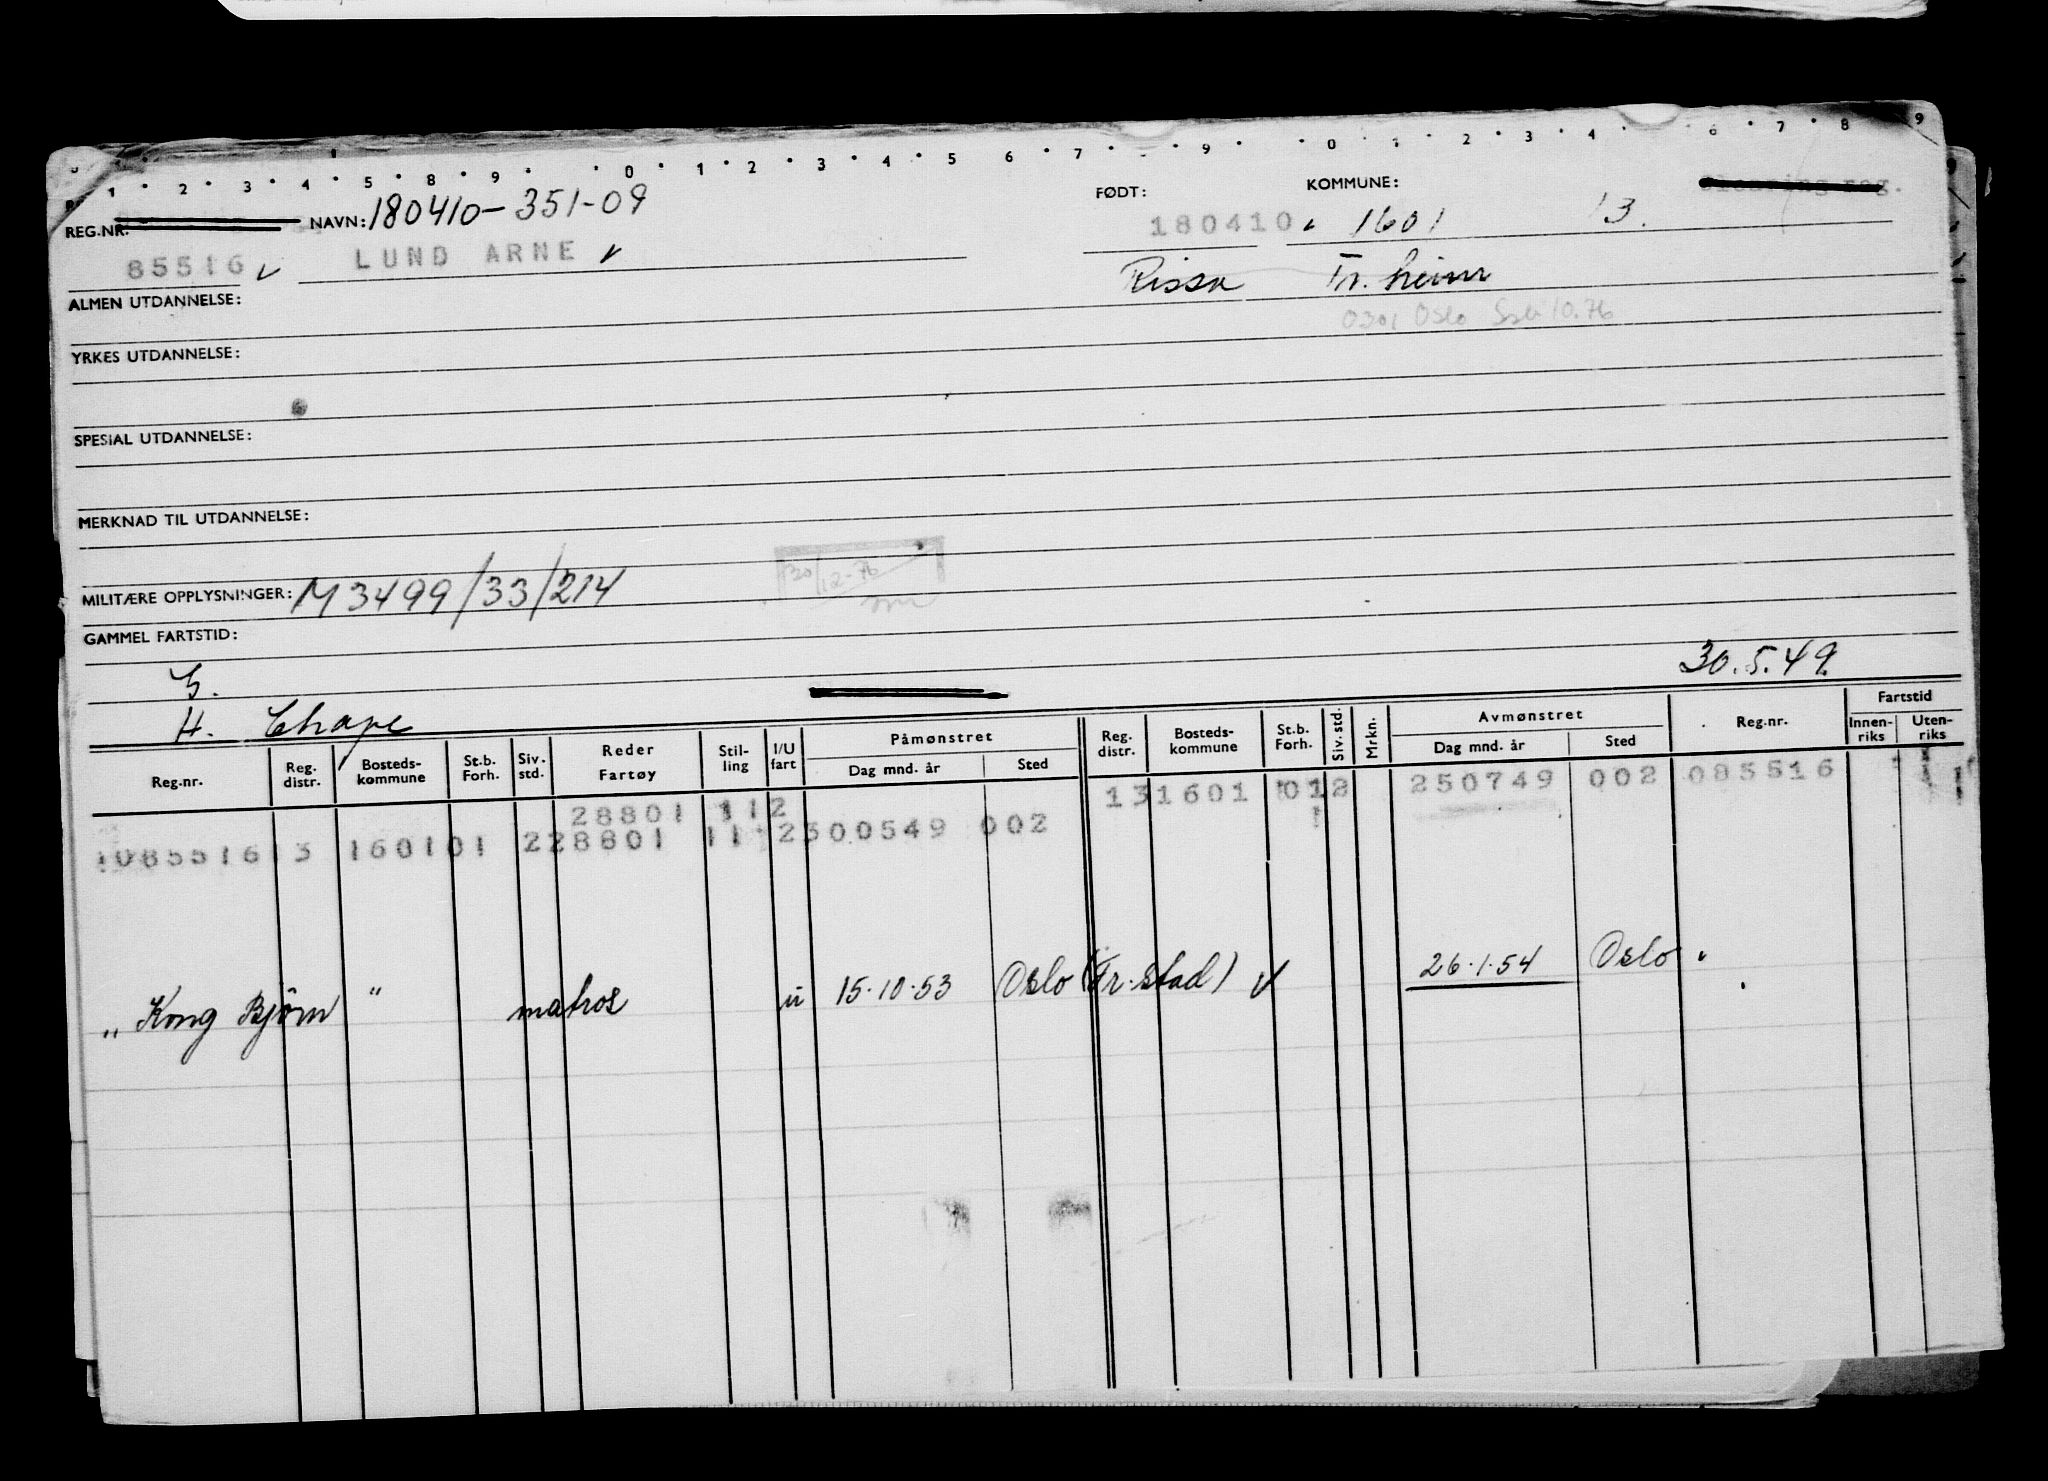 1 · 2 · 3 · 4 · 5 · 8 · 9 · · 0 · 1 · 2 · 3 · 4 · 5 6 · 7 · · 9 · · 0 · 1 · 2 · 3 · 4 · 6 · 7 · 8 · 9
REG.NR. NAVN: 180410-351-09 FØDT: KOMMUNE:
180410 1601 13.
85516 LUND ARNE
Rissa Tr.heim
ALMEN UTDANNELSE:
0301 Oslo 10.76
YRKES UTDANNELSE:
SPESIAL UTDANNELSE:
MERKNAD TIL UTDANNELSE:
20/12-76
MILITÆRE OPPLYSNINGER: M 3499/33/214
GAMMEL FARTSTID:
30.5.49
G.
H. Chape
Reg.nr. Reg. distr. Bosteds-kommune St.b. Forh. Siv. std. Reder Fartøy Stil-ling I/U fart Påmønstret Dag mnd. år Sted Reg. distr. Bosteds-kommune St.b. Forh. Siv. std. Mrkn. Avmønstret Dag mnd. år Sted Reg.nr. Fartstid Innen-riks Uten-riks
28801 112 131601 012 250749 002 085516
108551613 160101 228801 11 2300549 002
„ Kong Bjørn " matros u 15.10.53 Oslo (Fr.stad) 26.1.54 Oslo